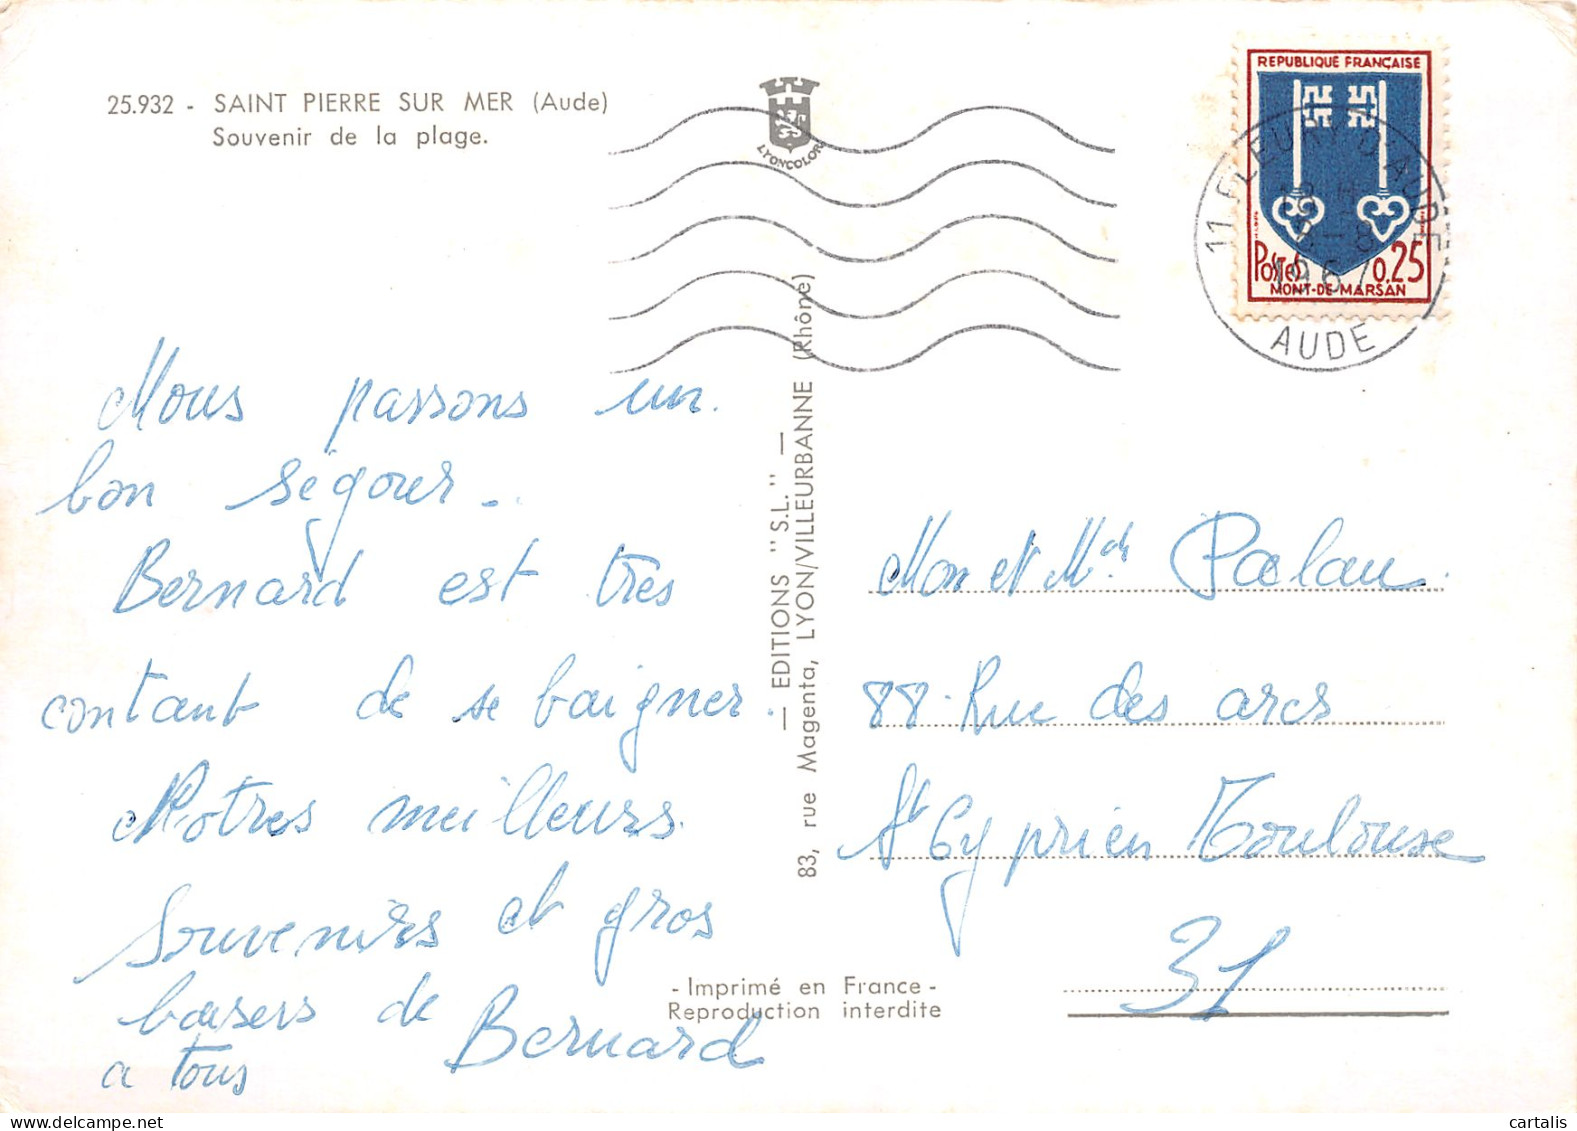 25.932 - SAINT PIERRE SUR MER (Aude)
Souvenir de la plage.
LYONCOLOR
REPUBLIQUE FRANÇAISE
Postes 0,25
MONT-DE-MARSAN
11 FLEURY D'AUDE
-8
1967
AUDE
Nous passons un
bon ségour -
Bernard est très
contant de se baigner.
Notres meilleurs
souvenirs et gros
basers de Bernard
a tous
— EDITIONS "S.L." —
83, rue Magenta, LYON/VILLEURBANNE (Rhône)
Mon et Mde Palau.
88 Rue des arcs
St Cyprien Toulouse
31
- Imprimé en France -
Reproduction interdite
cartalis